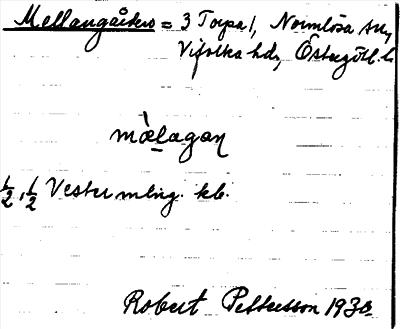 Mellangården = 3 Torpa 1, Normlösa sn,
Vifolka hd, Östergötl. l.
mælagaɳ
1/2, 1/2 Vester mlng. kb.
Robert Pettersson 1930